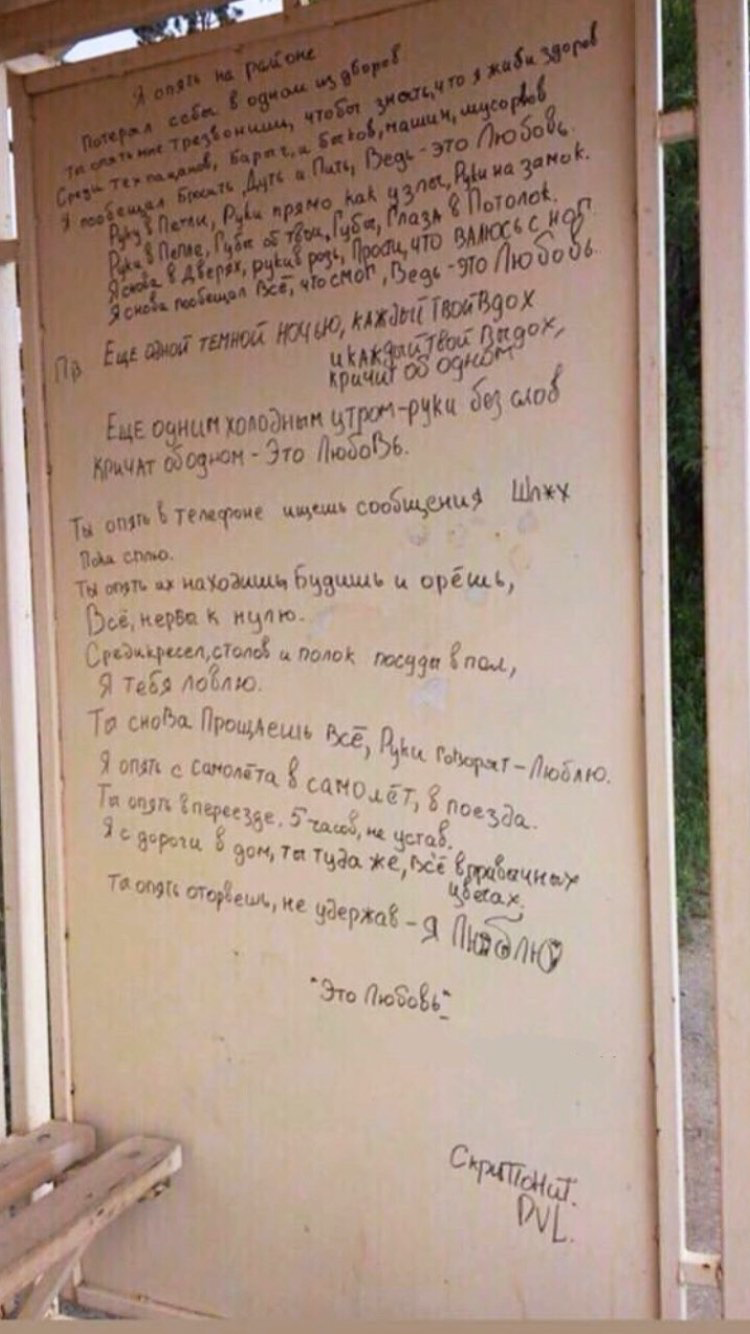 Я опять на районе
Потерял себя в одном из дворов
Ты опять мне трезвонишь, чтобы знать, что я жив и здоров
Среди тех пацанов, барыг, и быков, машин, мусоров
Я пообещал Бросить Дуть и Пить, Ведь - это Любовь.
Руки в Петли, Руки прямо как узлы, Руки на замок.
Руки в Пепле, Губы об твои, Губы, Глаза в Потолок.
Я снова в Дверях, руки в розь, Прости, что ВАЛЮСЬ С НОГ.
Я снова пообещал Всё, что смог, Ведь - это Любовь.
Пв
Еще одной темной ночью, каждый твой вдох
и каждый твой выдох,
кричит об одном
Еще одним холодным утром - руки без слов
кричат об одном - Это Любовь.
Ты опять в телефоне ищешь сообщения Шлжх
Пока сплю.
Ты опять их находишь, Будишь и орёшь,
Всё, нервы к нулю.
Среди кресел, столов и полок посуды в пол,
Я тебя ловлю.
Ты снова Прощаешь Всё, Руки говорят - Люблю.
Я опять с самолёта в самолёт, в поезда.
Ты опять в переезде. 5 часов, не устав.
Я с дороги в дом, ты туда же, всё в правычных
цветах.
Ты опять оторвешь, не удержав - Я Люблю
"Это Любовь"
Скриптонит.
DVL.